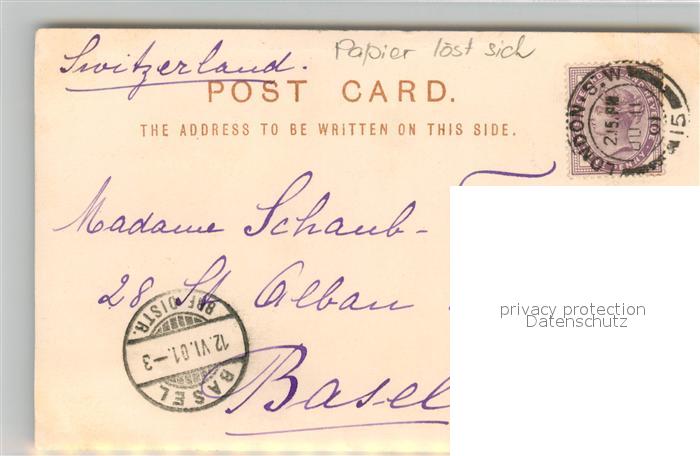 Switzerland.
Papier löst sich
POST CARD.
THE ADDRESS TO BE WRITTEN ON THIS SIDE.
LONDON. S.W
2.15.PM
15
Madame Schaub-
28 St Alban
Basel
BRF. DISTR.
12.VI.01.-3
BASEL
privacy protection
Datenschutz